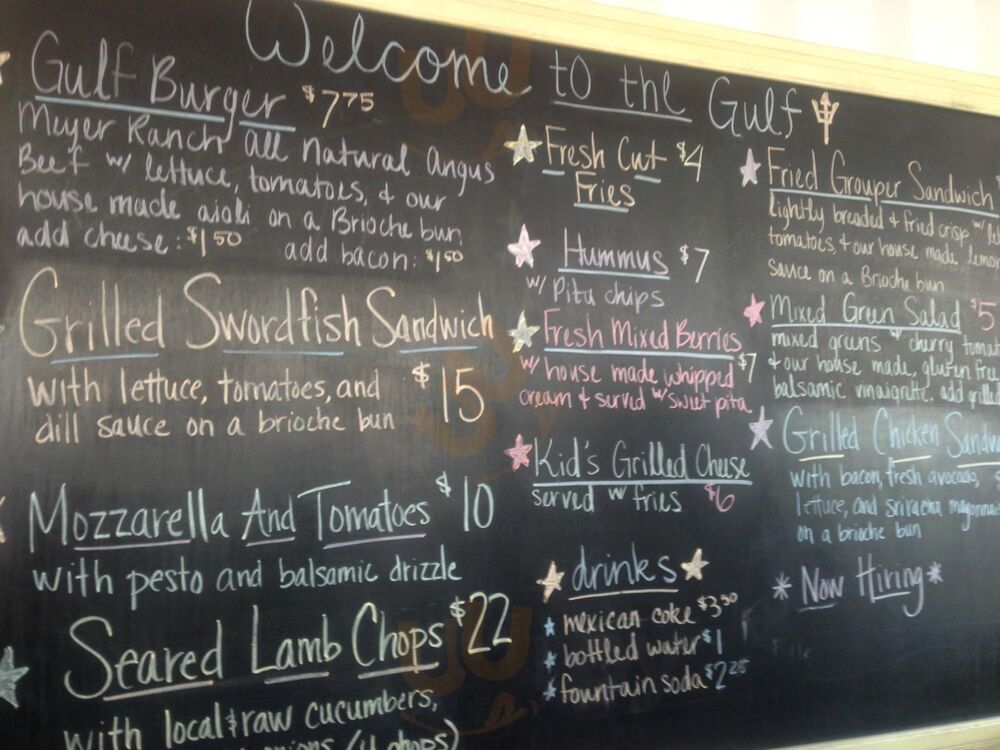 Welcome to the Gulf
Gulf Burger $7.75
Meyer Ranch all natural angus
Beef w/ lettuce, tomatoes, & our
house made aioli on a Brioche bun
add cheese: $1.50 add bacon: $1.50
Grilled Swordfish Sandwich
with lettuce, tomatoes, and
dill sauce on a brioche bun
$15
Mozzarella And Tomatoes $10
with pesto and balsamic drizzle
Seared Lamb Chops $22
with local & raw cucumbers,
onions (4 chops)
Fresh Cut $4
Fries
Hummus $7
w/ Pita chips
Fresh Mixed Berries
w/ house made whipped $7
cream & served w/ sweet pita
Kid's Grilled Cheese
served w/ fries $6
drinks
mexican coke $3.50
bottled water $1
fountain soda $2.25
Fried Grouper Sandwich
lightly breaded & fried crisp w/
tomatoes, & our house made lemon
sauce on a Brioche bun
Mixed Green Salad $5
mixed greens w/ cherry tomat
& our house made, gluten free
balsamic vinaigrette. add grilled
Grilled Chicken Sandw
with bacon, fresh avocado,
lettuce, and sriracha mayonnais
on a brioche bun
*Now Hiring*